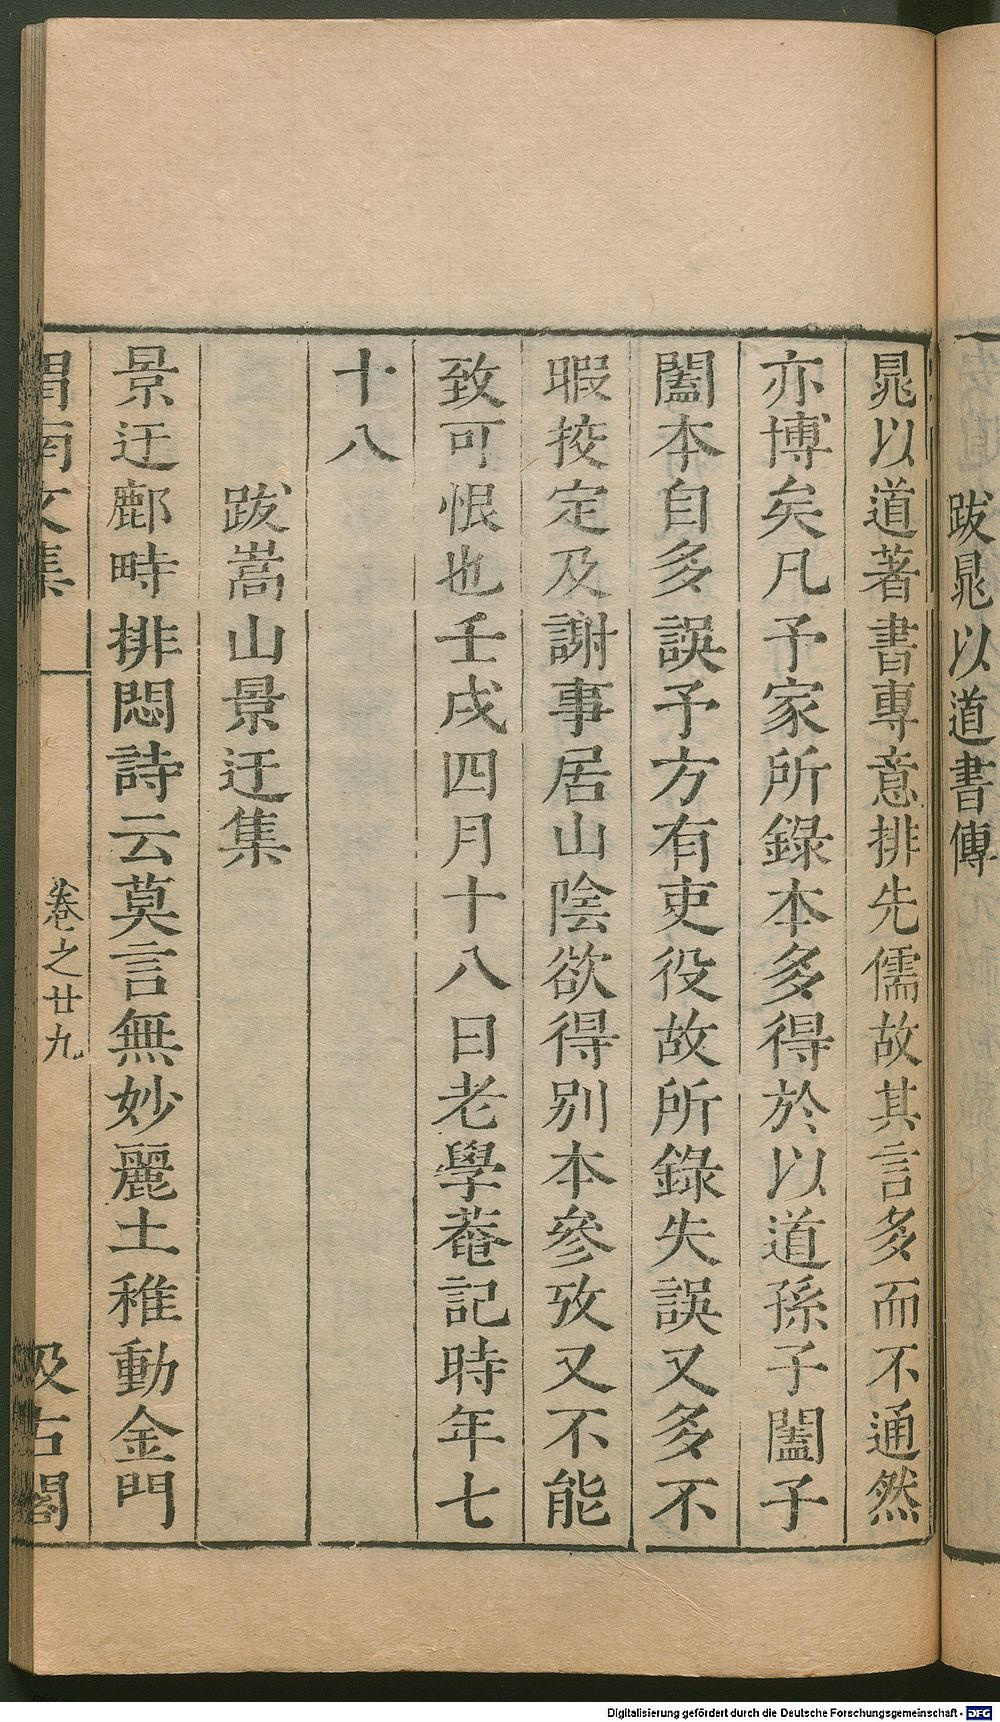 跋晁以道書傳
晁以道著書專意排先儒故其言多而不通然
亦博矣凡予家所錄本多得於以道孫子闔子
闔本自多誤予方有吏役故所錄失誤又多不
暇挍定及謝事居山陰欲得別本參攷又不能
致可恨也壬戌四月十八日老學菴記時年七
十八
跋嵩山景迂集
景迂鄜畤排悶詩云莫言無妙麗土稚動金門
渭南文集 卷之廿九 汲古閣
Digitalisierung gefördert durch die Deutsche Forschungsgemeinschaft - DFG